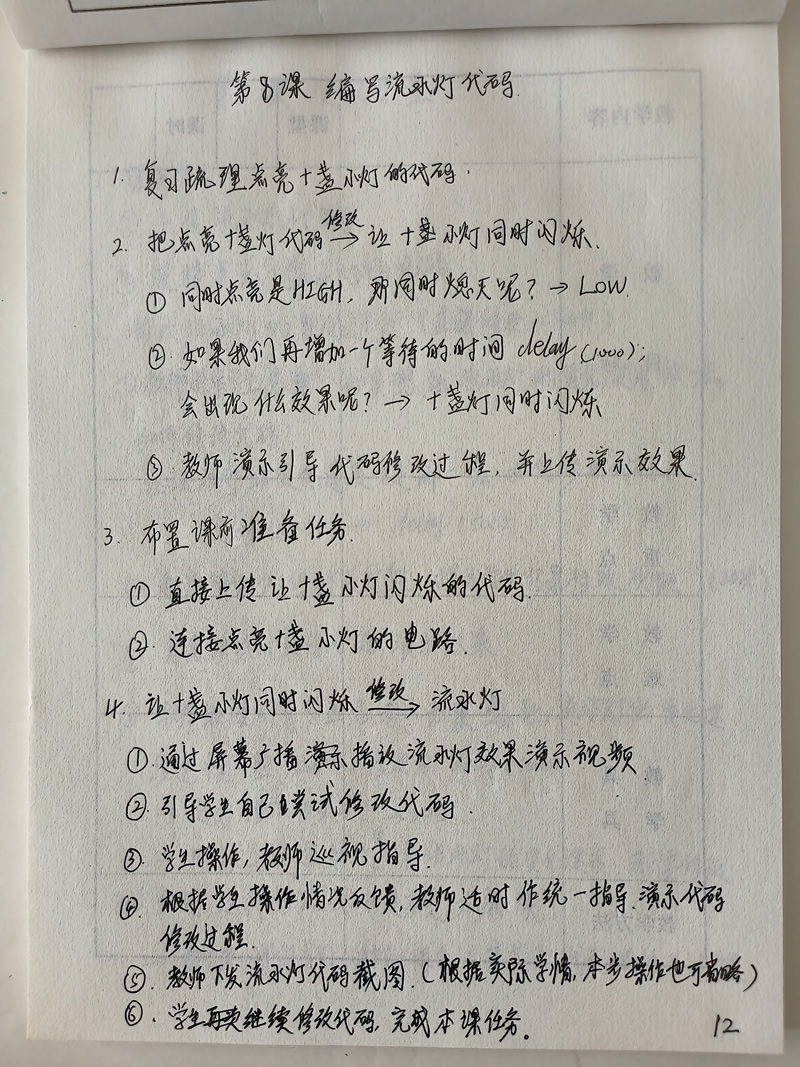 第8课 编写流水灯代码
1. 复习疏理点亮十盏小灯的代码.
2. 把点亮十盏灯代码 修改→ 让十盏小灯同时闪烁.
① 同时点亮是HIGH, 那同时熄灭呢? → LOW.
② 如果我们再增加一个等待的时间 delay(1000);
会出现什么效果呢? → 十盏灯同时闪烁
③ 教师演示引导代码修改过程, 并上传演示效果.
3. 布置课前准备任务.
① 直接上传让十盏小灯闪烁的代码.
② 连接点亮十盏小灯的电路.
4. 让十盏小灯同时闪烁 修改→ 流水灯
①. 通过屏幕广播演示播放流水灯效果演示视频
②. 引导学生自己尝试修改代码.
③. 学生操作, 教师巡视指导.
④. 根据学生操作情况反馈, 教师适时作统一指导. 演示代码
修改过程.
⑤. 教师下发流水灯代码截图. (根据实际学情, 本步操作也可省略)
⑥. 学生再次继续修改代码, 完成本课任务。
12